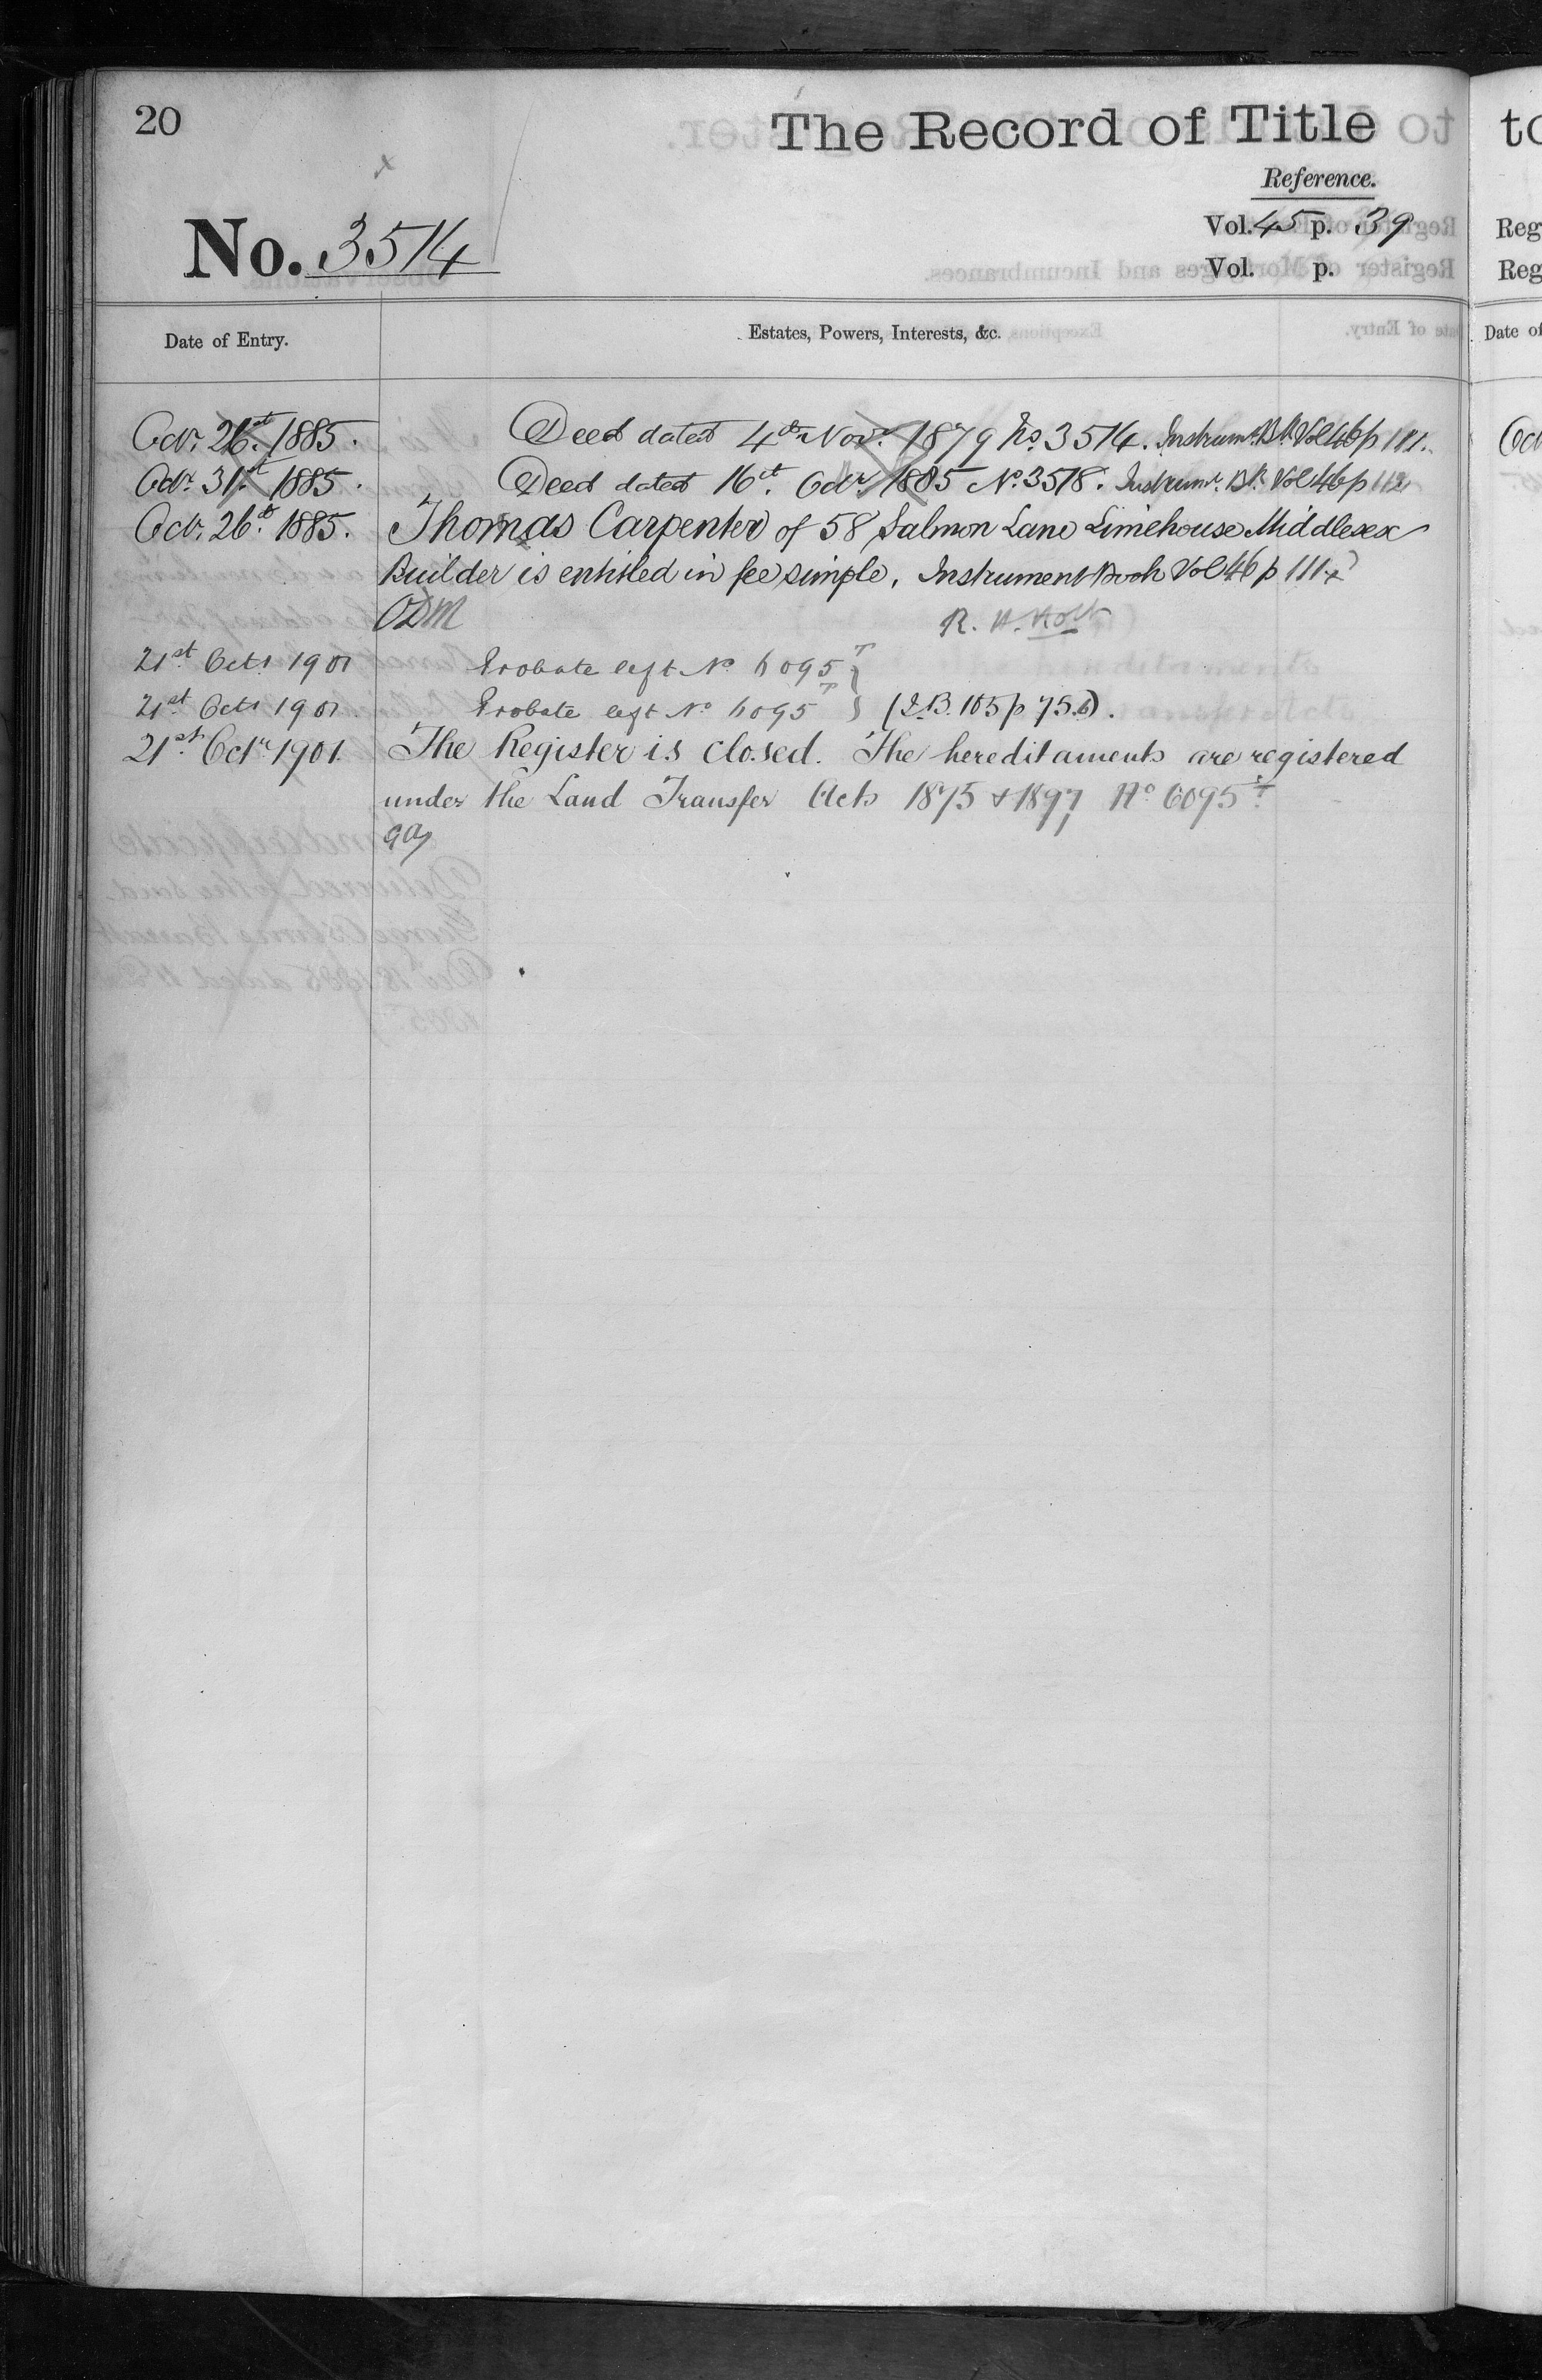 20
The Record of Title
Reference.
No. 3514
Vol. 45 p. 39
Vol. p.
Date of Entry.
Estates, Powers, Interests, &c.
Octr. 26th. 1885. Deed dated 4th Novr. 1879 No. 3514. Instrumt. Bk. Vol 46 p 111.
Octr. 31st. 1885. Deed dated 16th. Octr. 1885 No. 3518. Instrumt. Bk. Vol 46 p 112
Octr. 26th. 1885. Thomas Carpenter of 58 Salmon Lane Limehouse Middlesex
Builder is entitled in fee simple. Instrument Book Vol 46 p 111
R. H. Holt
21st. Octr 1901 Probate left No 6095T
21st. Octr 1901. Probate left No 6095T (I.B. 105 p 75.6).
21st. Octr. 1901. The Register is closed. The hereditaments are registered
under the Land Transfer Acts 1875 & 1897 No 6095T.
to
Reg
Reg
Date of
Oct